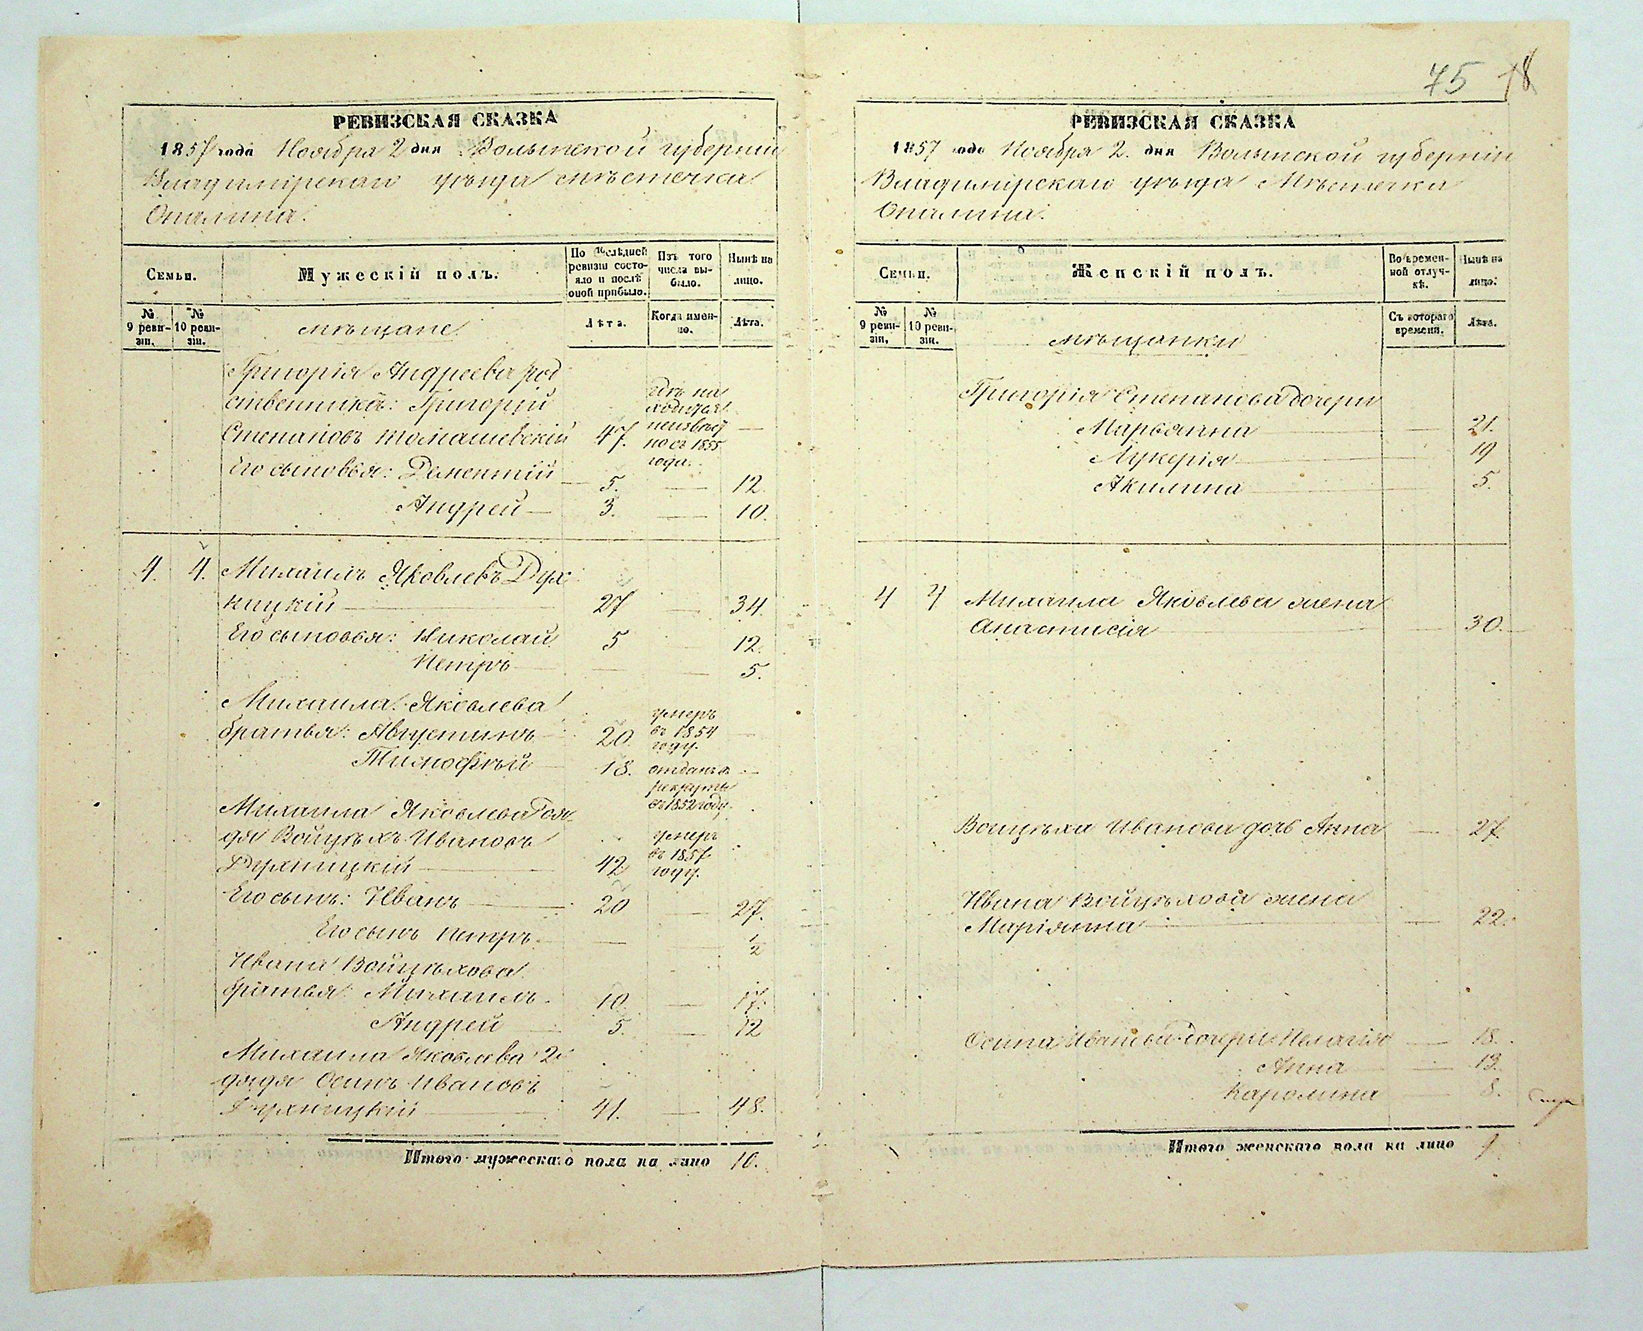 75 18
РЕВИЗСКАЯ СКАЗКА
1857 года Ноября 2 дня Волынской губерніи
Владимірскаго уѣзда мѣстечка
Опалина.
Семьи.
Мужескій полъ.
По послѣдней ревизіи состояло и послѣ оной прибыло.
Изъ того числа выбыло.
Нынѣ на лицо.
№ 9 ревизіи.
№ 10 ревизіи.
мѣщане
Лѣта.
Когда именно.
Лѣта.
Григорія Андреева род
ственникъ: Григорій
Степановъ Томашевскій 47.
неизвѣст
но съ 1855
года.
Его сыновья: Дементій 5. — 12.
Андрей — 3. — 10.
4. 4. Михаилъ Яковлевъ Дух
ницкій — 27 — 34.
Его сыновья: Николай 5 — 12.
Петръ — — — 5.
Михаила Яковлева
братья: Августинъ — 20. умеръ въ 1854 году. —
Тимофѣй — 18. отданъ въ рекруты въ 1852 году. —
Михаила Яковлева дя
дя Войцѣхъ Ивановъ
Духницкій — 42 умеръ въ 1857 году.
Его сынъ: Иванъ — 20 — 27.
Его сынъ Петръ — — 1/2
Ивана Войцѣхова
братья: Михаилъ 10. — 17.
Андрей — 5. — 12
Михаила Яковлева 2й
дядя Осипъ Ивановъ
Духницкій — 41. — 48.
Итого мужескаго пола на лицо 10.
РЕВИЗСКАЯ СКАЗКА
1857 года Ноября 2. дня Волынской губерніи
Владимірскаго уѣзда Мѣстечка
Опалина.
Семьи.
Женскій полъ.
Во временной отлучкѣ.
Нынѣ на лицо.
№ 9 ревизіи.
№ 10 ревизіи.
мѣщанки
Съ котораго времени.
Лѣта.
Григорія Степанова дочери
Марьянна — — 21.
Лукерія — — 19
Акилина — — 5.
4 4 Михаила Яковлева жена
Анастасія — — 30.
Войцѣха Иванова дочь Анна — 27.
Ивана Войцѣхова жена
Маріянна — — 22.
Осипа Иванова дочери: Пелагія — 18.
Анна — — 13.
Каролина — 8.
Итого женскаго пола на лицо 9